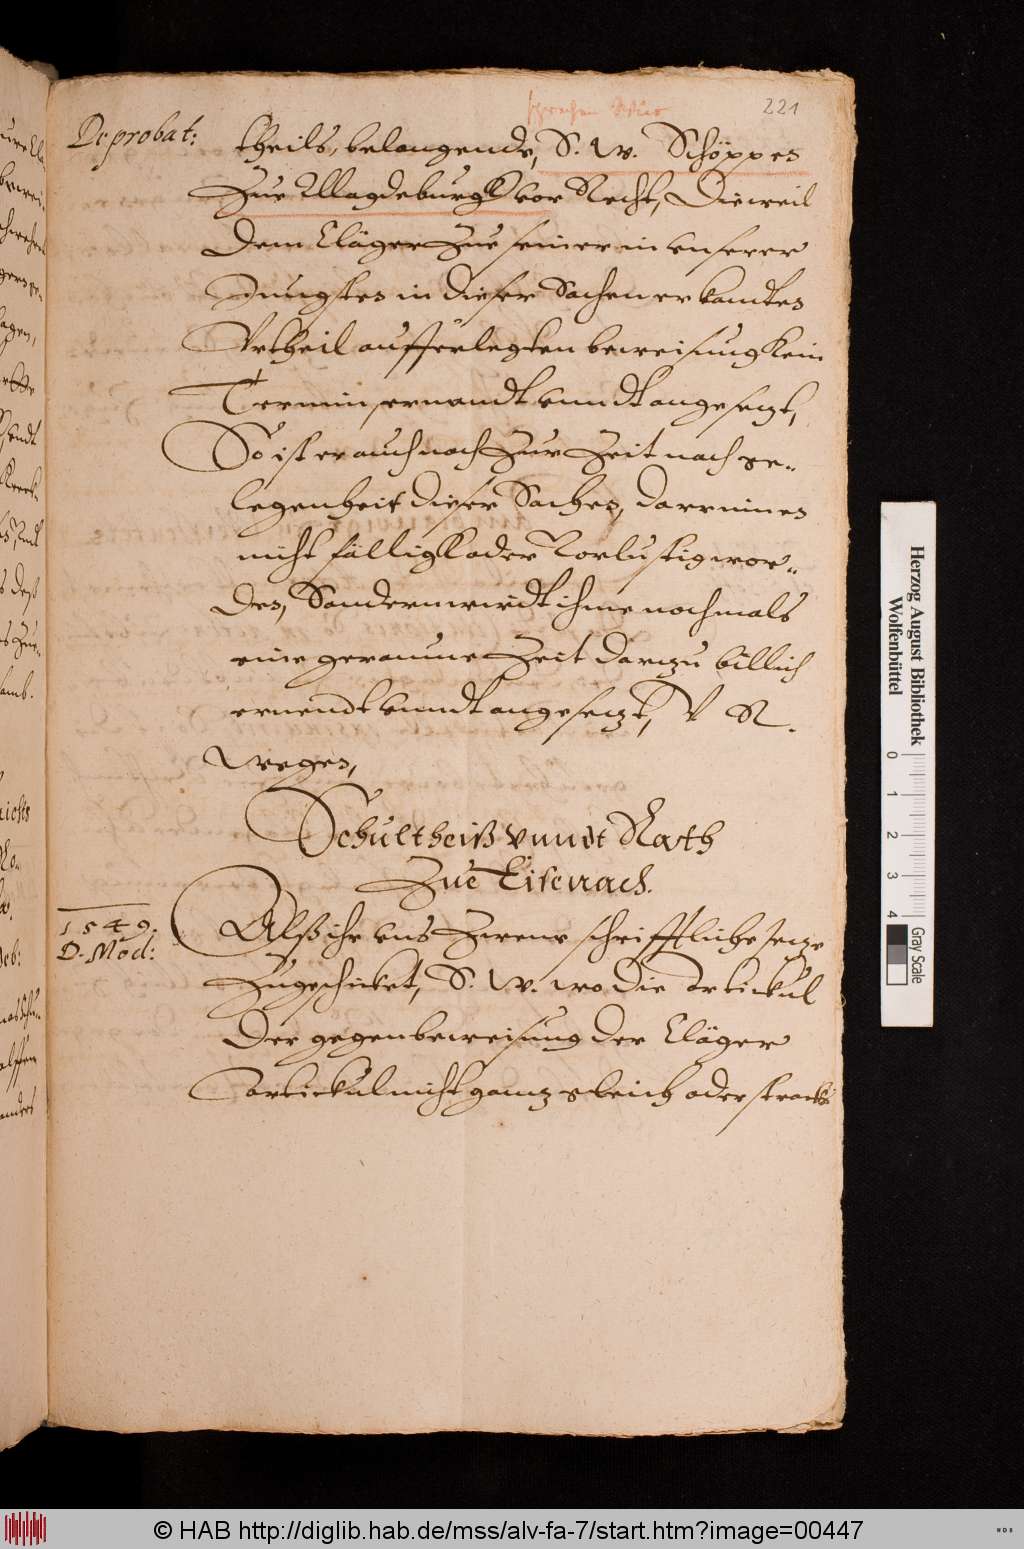 sprechen Wir
221
De probat:
theils, belangende, S. W. Schöppen
Zue Magdeburgk vor Recht, Dieweil
dem Cläger Zue seiner in vnserer
Jungsten in dieser Sachen erkandten
Vrtheil aufferlegten beweisung kein
Termin, ernandt vnndt angesezt,
So ist er auch noch Zur Zeit nach ge-
legenheit dieser Sachen, darinnen
nicht fällig oder Vorlustig wor-
den, Sondern wirdt ihme nochmals
eine geraume Zeit darzu billich
ernendt vnndt angesezt, V R.
wegen,
Schultheiß vnndt Rath
Zue Eisenach.
1549.
D. Mod:
Alß ihr vns Zwene schrifftliche seze
Zugeschicket, S. W. wo die Artickul
der gegenbeweisung der Cläger
Artickul nicht ganz gleich oder stracks
Herzog August Bibliothek
Wolfenbüttel
0 1 2 3 4
Gray Scale
© HAB http://diglib.hab.de/mss/alv-fa-7/start.htm?image=00447